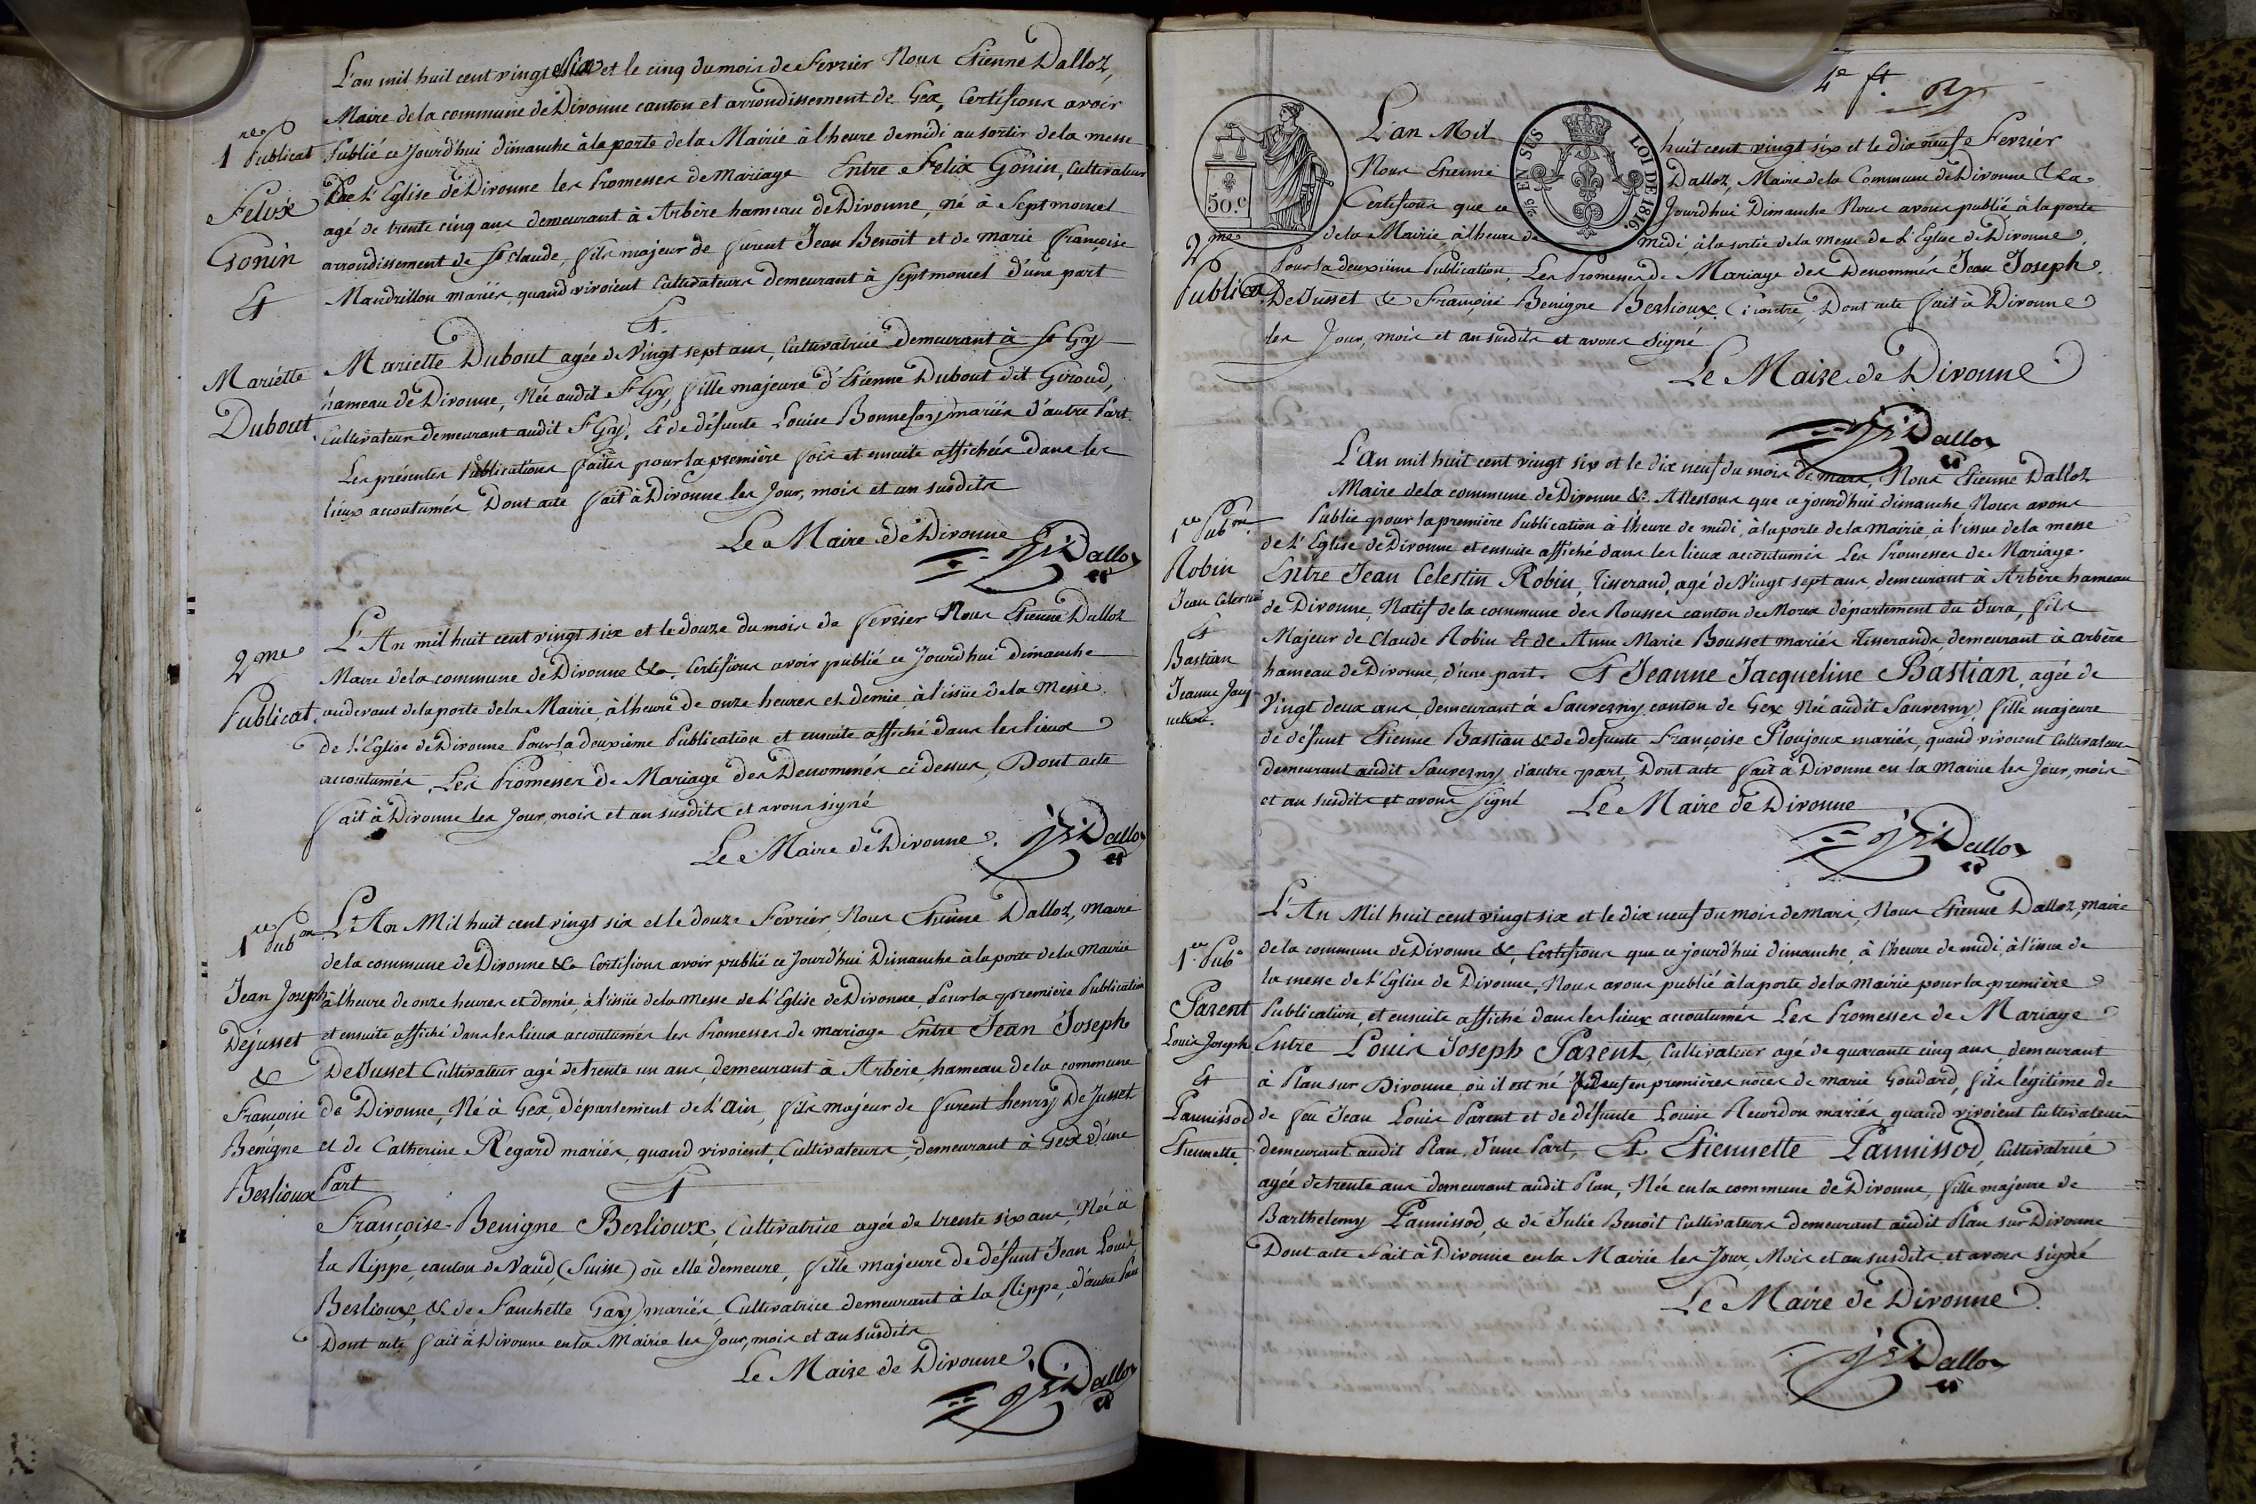 L'an mil huit cent vingt six et le cinq du mois de Fevrier Nous Etienne Dalloz,
Maire de la commune de Divonne canton et arrondissement de Gex, Certifions avoir
1re Publicat
Publié ce Jourd'hui dimanche à la porte de la Mairie à l'heure de midi au sortir de la messe
De L'Eglise de Divonne les Promesses de Mariage Entre Felix Gonin, Cultivateur
Felix
Gonin
Et
agé de trente cinq ans demeurant à Arbère hameau de Divonne, né à Septmoncel
arrondissement de St Claude, fils majeur de furent Jean Benoit et de marie françoise
Mandrillon mariés quand vivoient Cultivateurs demeurant à Septmoncel d'une part
Et
Mariette
Dubout
Mariette Dubout agée de Vingt sept ans, Cultivatrice demeurant à St Gix
hameau de Divonne, Née audit St Gix, fille majeure d'Etienne Dubout dit Giroud,
Cultivateur demeurant audit St Gix, Et de défunte Louise Bonnefoy mariés d'autre Part.
Les présentes Publications faites pour la première fois et ensuite affichées dans les
lieux accoutumés Dont acte fait à Divonne les Jour, mois et an susdits
Le Maire de Divonne
Dalloz
2me
Publicat.
L'An mil huit cent vingt six et le douze du mois de fevrier Nous Etienne Dalloz
Maire de la commune de Divonne &a. Certifions avoir publié ce Jourd'hui dimanche
audevant de la porte de la Mairie, à l'heure de onze heures et demie, à l'issue de la Messe
de L'Eglise de Divonne Pour la deuxième Publication et ensuite affiché dans les lieux
accoutumés, Les Promesses de Mariage des Denommés ci dessus, Dont acte
fait à Divonne les Jour, mois et an susdits et avons signé
Le Maire de Divonne.
Dalloz
1re Pubon
Jean Joseph
Dejusset
&
Françoise
Benigne
Berlioux
L'An Mil huit cent vingt six et le douze Fevrier, Nous Etienne Dalloz, Maire
de la commune de Divonne &a Certifions avoir publié ce Jourd'hui Dimanche à la porte de la Mairie
à l'heure de onze heures et demie, à l'issue de la Messe de L'Eglise de Divonne, Pour la premiere Publication
et ensuite affiché dans les lieux accoutumés les Promesses de mariage Entre Jean Joseph
DeJusset Cultivateur agé de trente un ans, demeurant à Arbère, hameau de la commune
de Divonne, Né à Gex, département de L'ain, fils majeur de furent henry DeJusset
et de Catherine Regard mariés, quand vivoient, Cultivateurs, demeurant à Gex d'une
Part
Et
Françoise Benigne Berlioux, Cultivatrice agée de trente six ans, Née à
la Rippe, canton de Vaud, (Suisse) où elle demeure, fille majeure de défunt Jean Louis
Berlioux, & de Fanchette Gay mariés, Cultivatrice demeurant à la Rippe, d'autre Part
Dont acte fait à Divonne en la Mairie les Jour, mois et an susdits
Le Maire de Divonne
Dalloz
4e ft.
50.c
EN SUS
LOI DE 1816
L'an Mil huit cent vingt six et le dix neuf Fevrier
Nous Etienne Dalloz, Maire de la Commune de Divonne &a
Certifions que ce Jourd'hui Dimanche Nous avons publié, à la porte
2me
Publica
de la Mairie, à l'heure de midi, à la sortie de la Messe de L'Eglise de Divonne
Pour la deuxième Publication, Les Promesses de Mariage des Denommés Jean Joseph
DeJusset & Françoise Benigne Berlioux, Ci contre, Dont acte fait à Divonne
les Jour, mois et an susdits et avons signé
Le Maire de Divonne
Dalloz
1re Pubon
Robin
Jean Celestin
Et
Bastian
Jeanne Jacqueline
L'an mil huit cent vingt six et le dix neuf du mois de mars, Nous Etienne Dalloz
Maire de la commune de Divonne &. Attestons que ce jourd'hui dimanche Nous avons
Publié pour la première Publication à l'heure de midi, à la porte de la Mairie, à l'issue de la messe
de L'Eglise de Divonne et ensuite affiché dans les lieux accoutumés Les Promesses de Mariage.
Entre Jean Celestin Robin, Tisserand, agé de Vingt sept ans, demeurant à Arbère hameau
de Divonne, Natif de la commune des Rousses canton de Morez département du Jura, fils
Majeur de Claude Robin Et de Anne Marie Bousset mariés Tisserands, demeurant à arbère
hameau de Divonne, d'une part. Et Jeanne Jacqueline Bastian, agée de
Vingt deux ans, demeurant à Sauverny canton de Gex Née audit Sauverny, fille majeure
de défunt Etienne Bastian & de defunte Françoise Ploujoux mariés, quand vivoient Cultivateurs
demeurant audit Sauverny, d'autre part, Dont acte fait à Divonne en la Mairie les Jour, mois
et an susdits et avons signé
Le Maire de Divonne
Dalloz
1re Pubo
Parent
Louis Joseph
Et
Pannissod
Etiennette.
L'An Mil huit cent vingt six et le dix neuf du mois de Mars, Nous Etienne Dalloz, Maire
de la commune de Divonne &, Certifions que ce jourd'hui dimanche, à l'heure de midi, à l'issue de
la messe de L'Eglise de Divonne, Nous avons publié à la porte de la Mairie pour la première
Publication, et ensuite affiché dans les lieux accoutumés Les Promesses de Mariage
Entre Louis Joseph Parent, Cultivateur agé de quarante cinq ans, demeurant
à Plan sur Divonne, où il est né veuf en premières nôces de marie Goudard, fils légitime de
de feu Jean Louis Parent et de défunte Louise Recordon mariés, quand vivoient Cultivateurs
demeurant audit Plan, d'une Part, Et Etiennette Pannissod, Cultivatrice
agée de trente ans demeurant audit Plan, Née en la commune de Divonne, fille majeure de
Barthelemy Pannissod, & de Julie Benoit Cultivateurs demeurant audit Plan sur Divonne
Dont acte Fait à Divonne en la Mairie les Jour, Mois et an susdits et avons signé
Le Maire de Divonne.
Dalloz